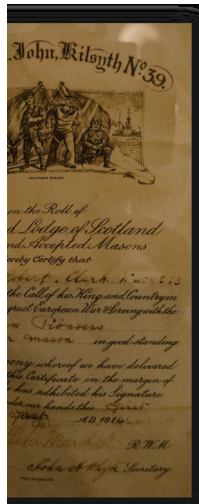 . John, Kilsyth No. 39.
on the Roll of
d Lodge of Scotland
nd Accepted Masons
ereby Certify that
Robert Clark
the Call of his King and Country in
great European War & Serving with the
Pioneers
mason in good standing
ony whereof we have delivered
this Certificate, on the margin of
has adhibited his Signature
der our hands this first
A.D. 1916
R.W.M.
John A Whyte Secretary